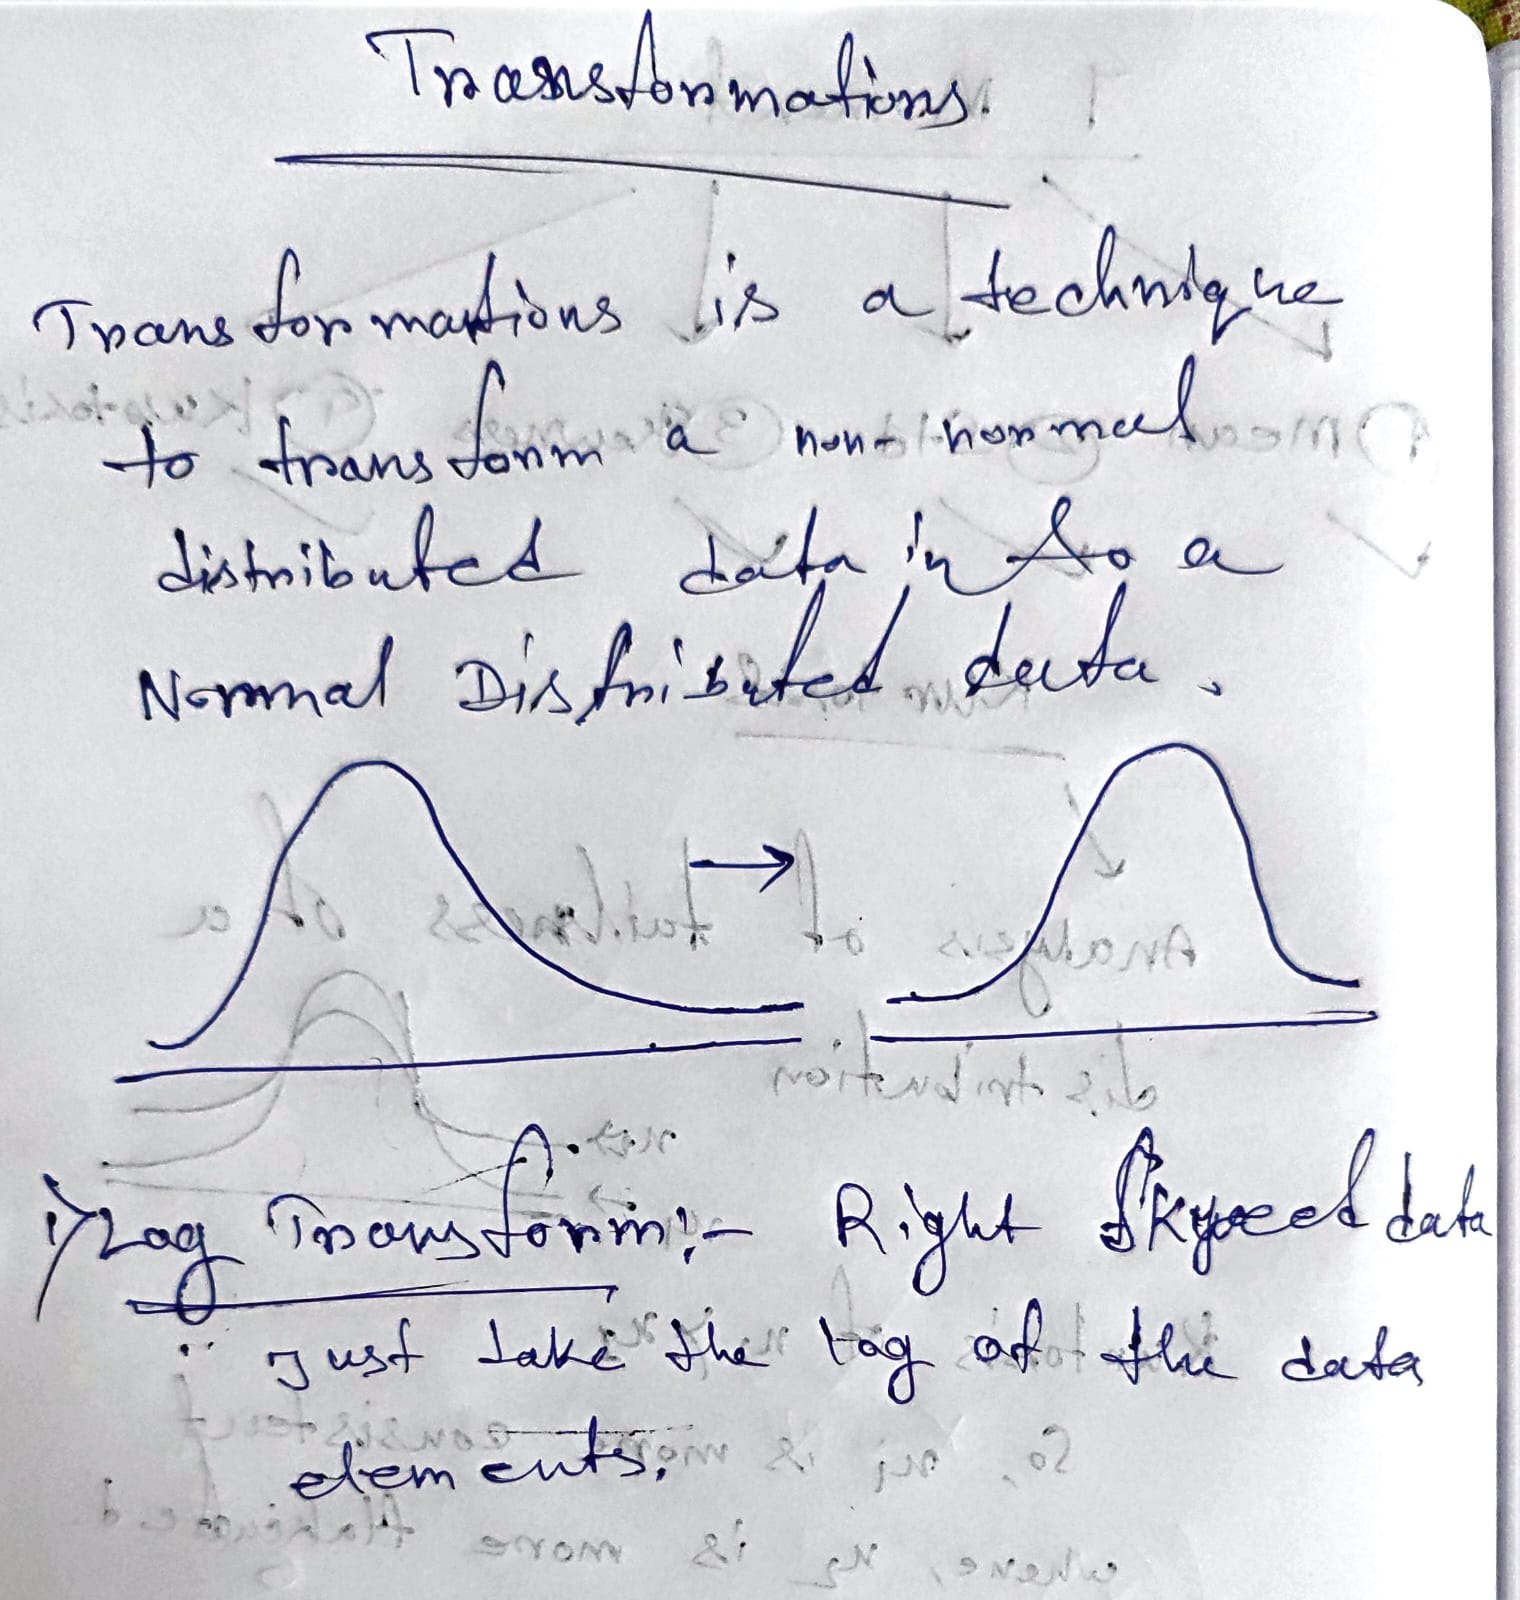 Transformations.
Transformations is a technique
to transform a non-normal
distributed data in to a
Normal Distributed data.
1) Log Transform:- Right Skyeed data
Just take the log of the data
elements.